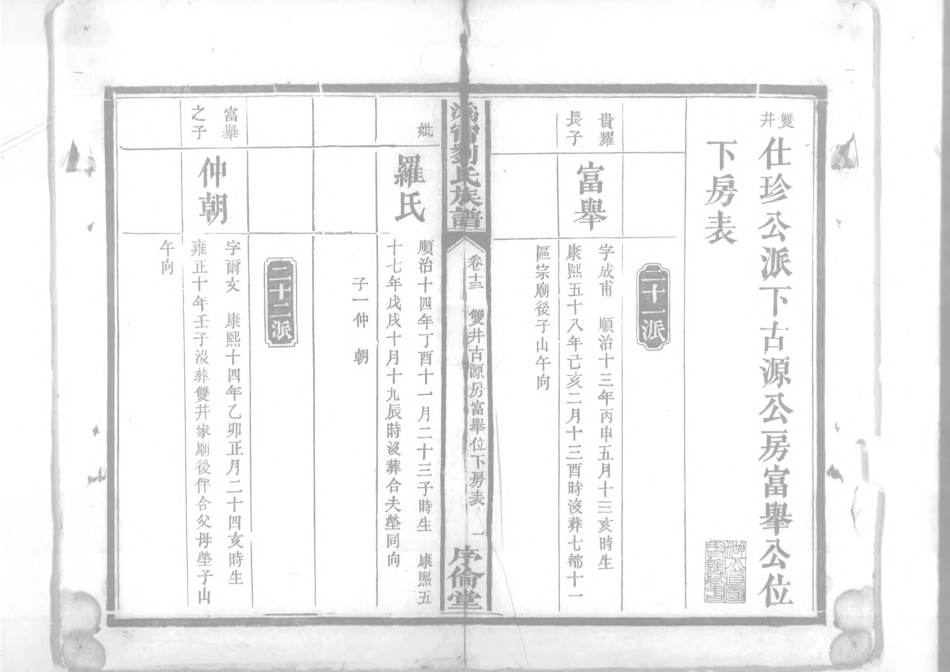 雙井
仕珍公派下古源公房富舉公位
下房表
二十一派
貴耀
長子
富舉
字成甫 順治十三年丙申五月十三亥時生
康熙五十八年己亥二月十三酉時沒葬七都十一
區宗廟後子山午向
劉氏族譜
卷十三 雙井古源房富舉位下房表 一
序倫堂
妣
羅氏
順治十四年丁酉十一月二十三子時生 康熙五
十七年戊戌十月十九辰時沒葬合夫塋同向
子一仲朝
二十二派
富舉
之子
仲朝
字爾文 康熙十四年乙卯正月二十四亥時生
雍正十年壬子沒葬雙井家廟後伴合父母塋子山
午向